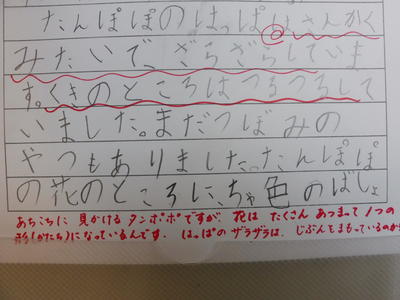 たんぽぽのはっぱは、さんかく
みたいで、ざらざらしていま
す。くきのところはつるつるして
いました。まだつぼみの
やつもありました。たんぽぽ
の花のところに、ちゃ色のばしょ
あちこちに見かけるタンポポですが、花はたくさんあつまって1つの
形(かたち)になっているんです。はっぱのザラザラは、じぶんをまもっているのか